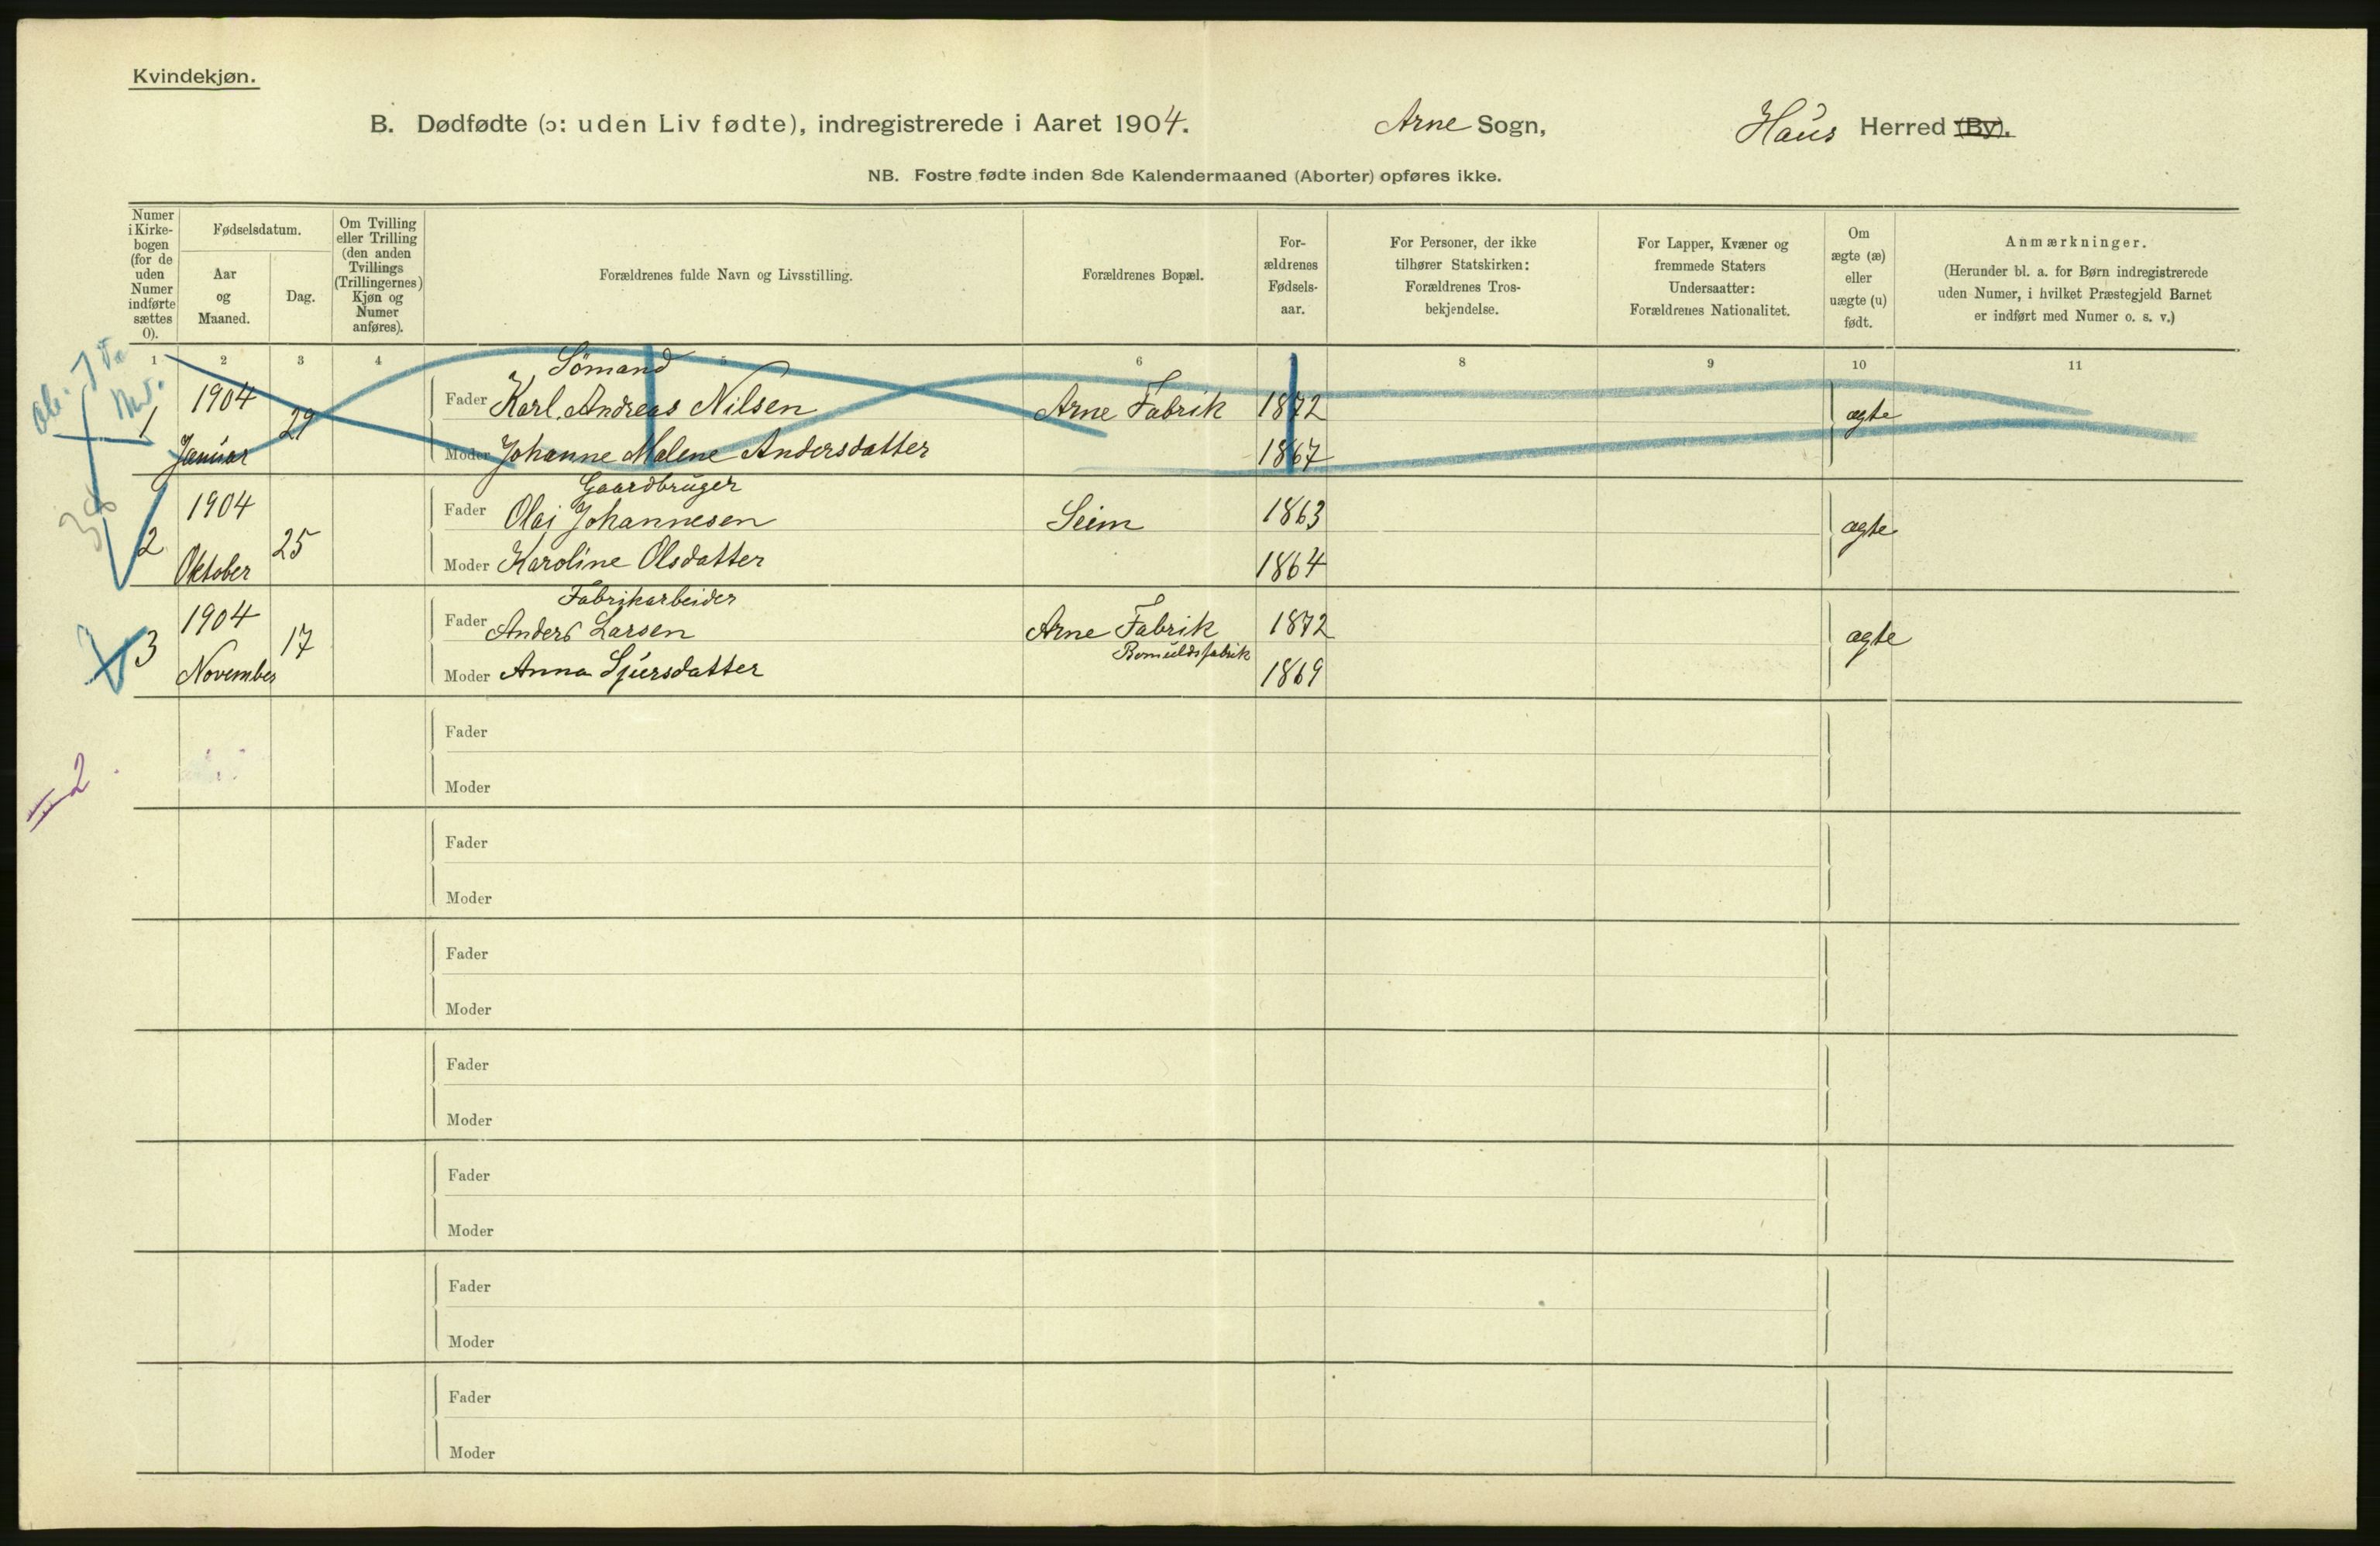 Kvindekjøn.
B. Dødfødte (ɔ: uden Liv fødte), indregistrerede i Aaret 1904. Arne Sogn, Haus Herred (By).
NB. Fostre fødte inden 8de Kalendermaaned (Aborter) opføres ikke.
Numer
i Kirke-
bogen
(for de
uden
Numer
indførte
sættes
0).
Fødselsdatum.
Aar
og
Maaned.
Dag.
Om Tvilling
eller Trilling
(den anden
Tvillings
(Trillingernes)
Kjøn og
Numer
anføres).
Forældrenes fulde Navn og Livsstilling.
Forældrenes Bopæl.
For-
ældrenes
Fødsels-
aar.
For Personer, der ikke
tilhører Statskirken:
Forældrenes Tros-
bekjendelse.
For Lapper, Kvæner og
fremmede Staters
Undersaatter:
Forældrenes Nationalitet.
Om
ægte (æ)
eller
uægte (u)
født.
Anmærkninger.
(Herunder bl. a. for Børn indregistrerede
uden Numer, i hvilket Præstegjeld Barnet
er indført med Numer o. s. v.)
1 2 3 4 5 6 7 8 9 10 11
Sömand
1 1904 29 Fader Karl Andreas Nilsen Arne Fabrik 1872 ægte
Januar Moder Johanne Malene Andersdatter 1867
38
Gaardbruger
2 1904 25 Fader Olai Johannesen Seim 1863 ægte
Oktober Moder Karoline Olsdatter 1864
Fabrikarbeider
3 1904 17 Fader Anders Larsen Arne Fabrik 1872 ægte
Bomuldsfabrik
November Moder Anna Sjursdatter 1869
Fader
2
Moder
Fader
Moder
Fader
Moder
Fader
Moder
Fader
Moder
Fader
Moder
Fader
Moder